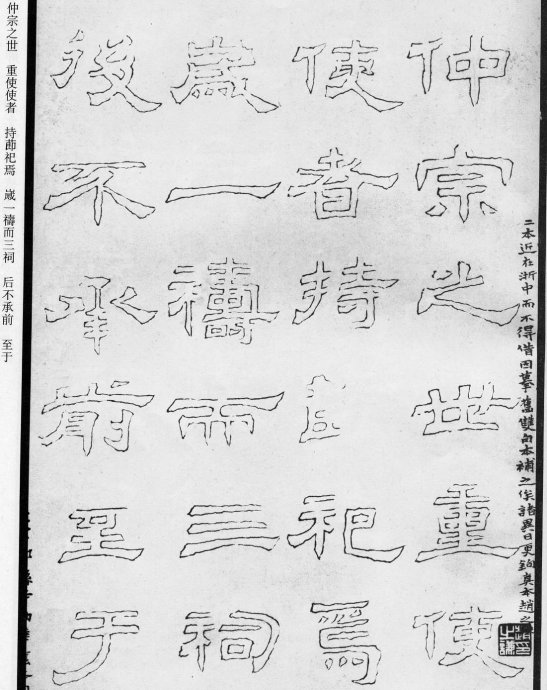 二本近在浙中而不得借因摹舊雙勾本補之俟諸異日更鉤真本趙之
仲宗之世重使
使者持祀焉
歲一禱而三祠
後不承前至于
仲宗之世 重使使者 持莭祀焉 嵗一禱而三祠 后不承前 至于